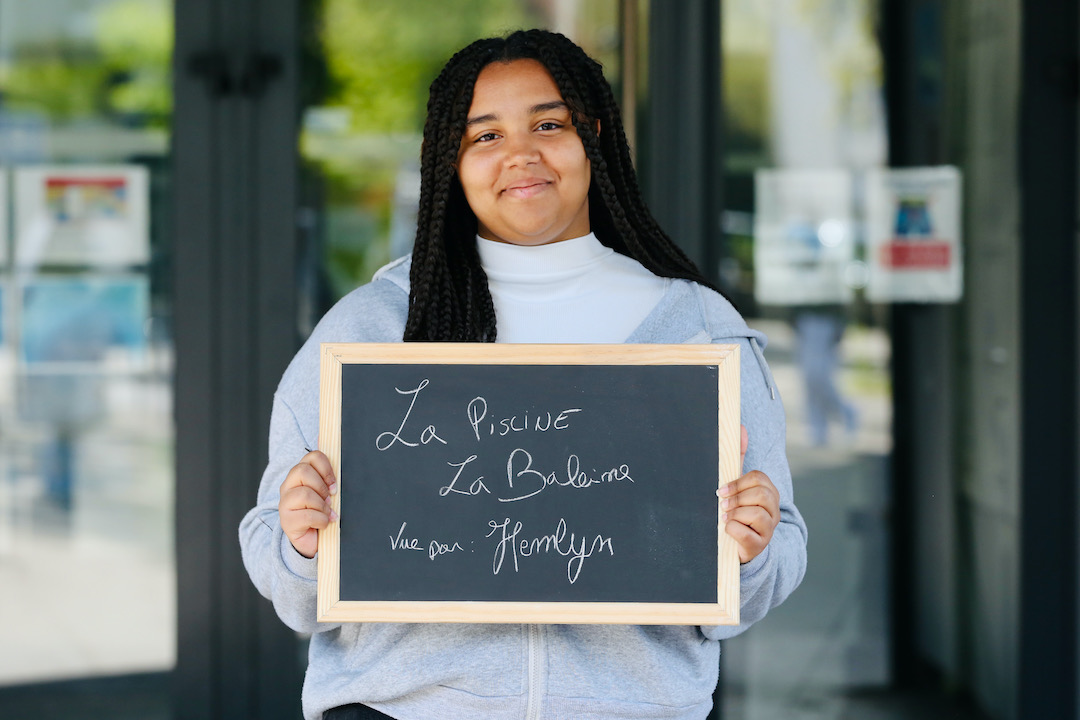 La Piscine
La Baleine
Vue par : Hemlyn